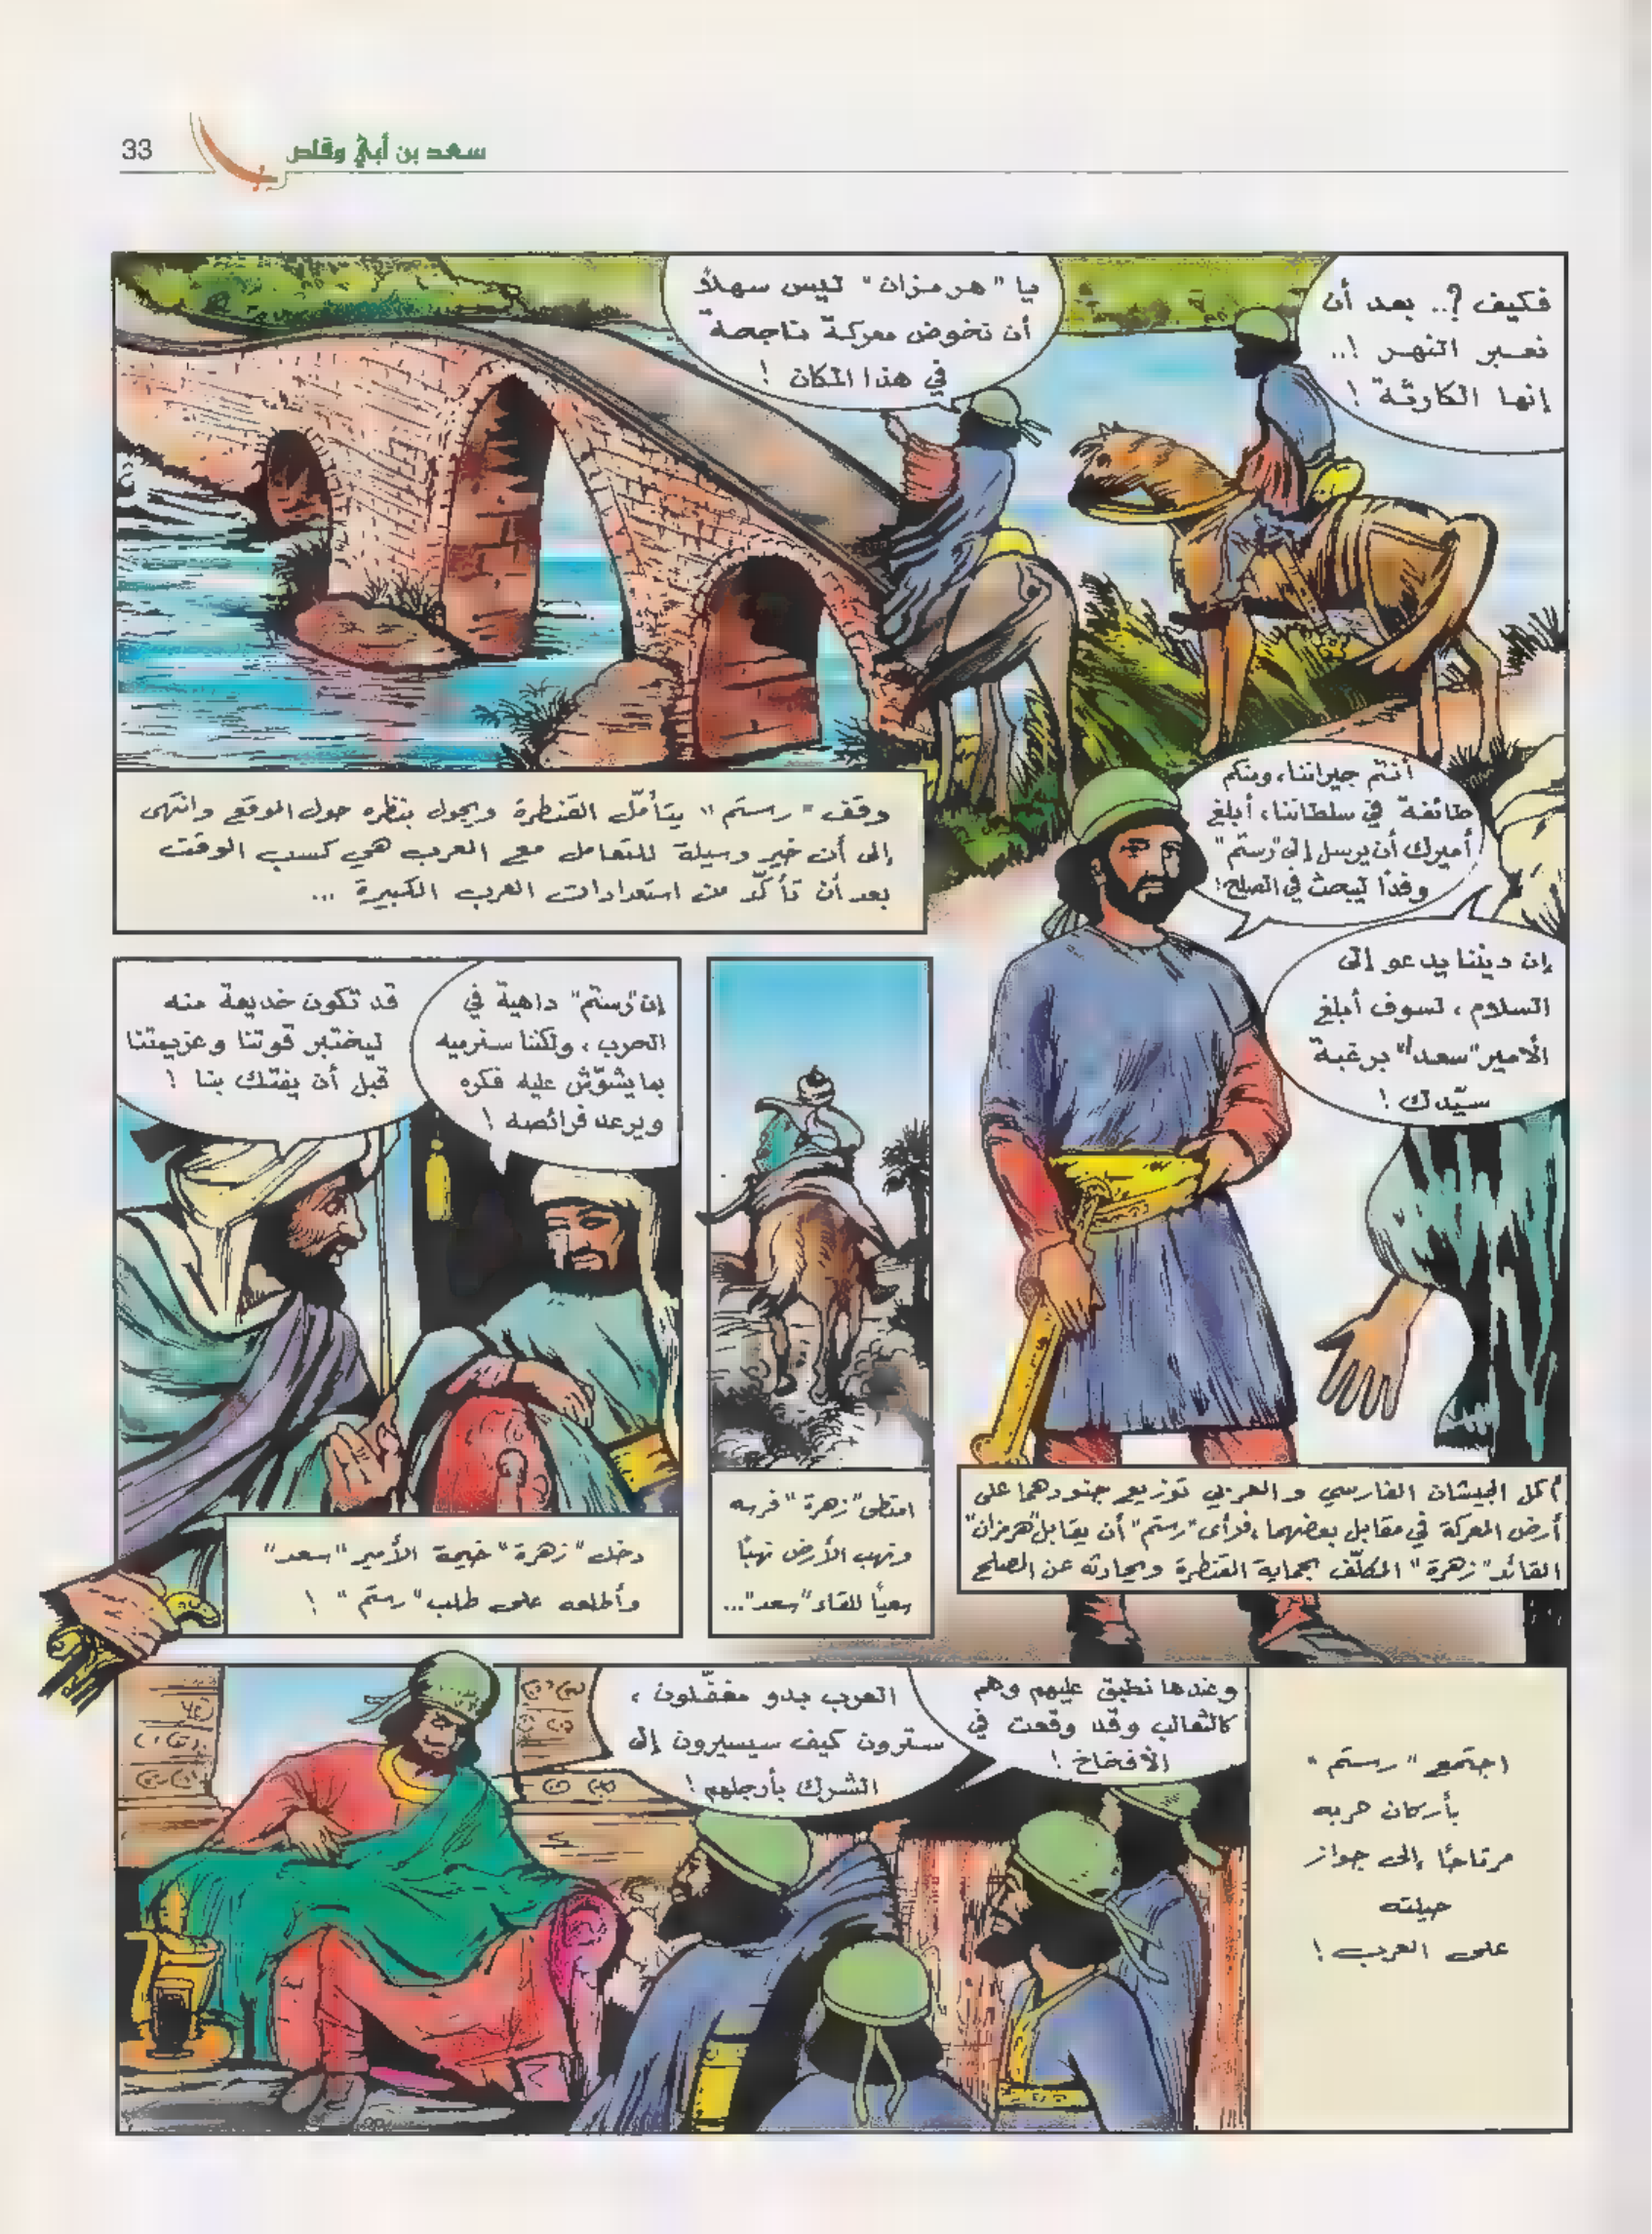 33
سعد بن أبي وقاص
فكيف ?.. بعد أن
نعبر النهر !..
إنها الكارثة !
يا "هرمزان" ليس سهلاً
أن نخوض معركة ناجحة
في هذا المكان !
وقف "رستم" يتأمّل القنطرة ويجول بنظره حول الموقع وانتهى
إلى أن خير وسيلة للتعامل مع العرب هي كسب الوقت
بعد أن تأكّد من استعدادات العرب الكبيرة ...
أنتم جيراننا، ومنكم
طائفة في سلطاننا، أبلغ
أميرك أن يرسل إلى "رستم"
وفدًا ليبحث في الصلح !
إن ديننا يدعو إلى
السلام ، لسوف أبلغ
الأمير "سعدا" برغبة
سيّدك !
أكمل الجيشان الفارسي والعربي توزيع جنودهما على
أرض المعركة في مقابل بعضهما، فرأى "رستم" أن يقابل "هرمزان"
القائد "زهرة" المكلّف بحماية القنطرة ويحادثه عن الصلح
امتطى "زهرة" فرسه
ونهب الأرض نهبًا
سعياً للقاء "سعد"...
إن "رستم" داهية في
الحرب ، ولكننا سنرميه
بما يشوّش عليه فكره
ويرعد فرائصه !
قد تكون خديعة منه
ليختبر قوتنا وعزيمتنا
قبل أن يفتك بنا !
دخل "زهرة" خيمة الأمير "سعد"
وأطلعه على طلب "رستم" !
اجتمع "رستم"
بأركان حربه
مرتاحًا إلى جواز
حيلته
على العرب !
وعندها نطبق عليهم وهم
كالثعالب وقد وقعت في
الأفخاخ !
العرب بدو مغفّلون ،
سترون كيف سيسيرون إلى
الشرك بأرجلهم !